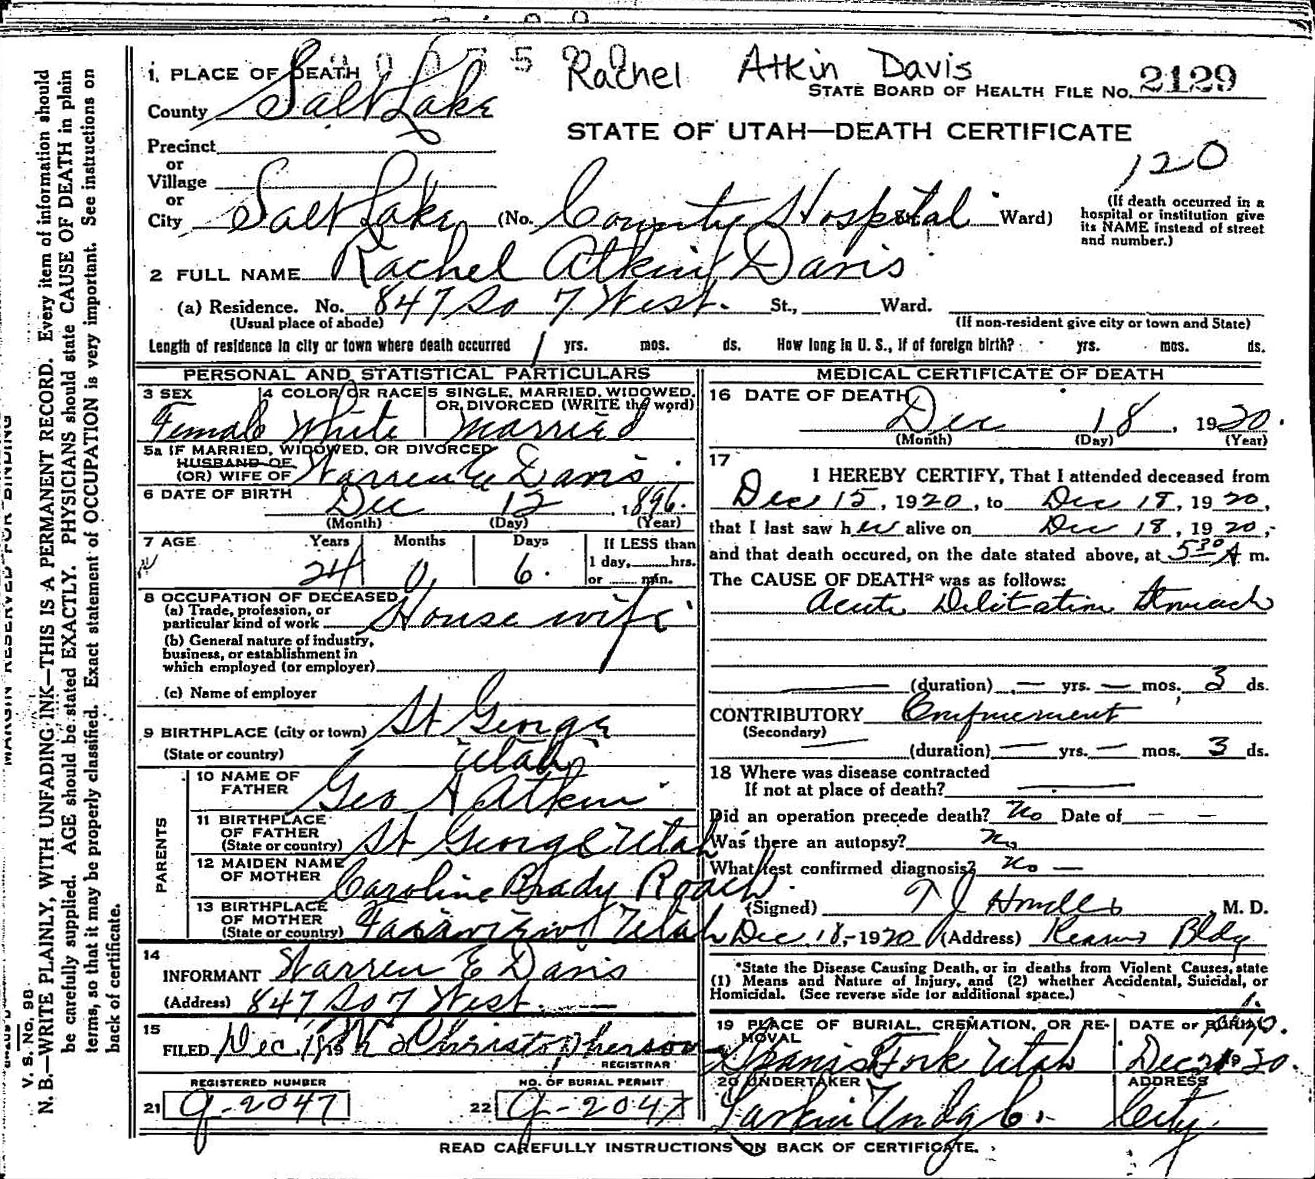 Rachel Atkin Davis
1. PLACE OF DEATH
STATE BOARD OF HEALTH FILE No. 2129
County Salt Lake
STATE OF UTAH—DEATH CERTIFICATE
120
Precinct
or
Village
or
City Salt Lake (No. County Hospital Ward)
(If death occurred in a hospital or institution give its NAME instead of street and number.)
2 FULL NAME Rachel Atkin Davis
(a) Residence. No. 847 So 7 West. St., Ward.
(Usual place of abode) (If non-resident give city or town and State)
Length of residence in city or town where death occurred 1 yrs. mos. ds. How long in U. S., if of foreign birth? yrs. mos. ds.
PERSONAL AND STATISTICAL PARTICULARS
3 SEX 4 COLOR OR RACE 5 SINGLE, MARRIED, WIDOWED, OR DIVORCED (WRITE the word)
Female White Married
5a IF MARRIED, WIDOWED, OR DIVORCED
HUSBAND OF
(OR) WIFE OF Warren E Davis
6 DATE OF BIRTH Dec 12, 1896.
(Month) (Day) (Year)
7 AGE Years Months Days If LESS than
24 0 6. 1 day, hrs.
or min.
8 OCCUPATION OF DECEASED
(a) Trade, profession, or
particular kind of work House wife
(b) General nature of industry,
business, or establishment in
which employed (or employer)
(c) Name of employer
9 BIRTHPLACE (city or town) St George
(State or country) Utah
PARENTS
10 NAME OF
FATHER Geo A Atkin
11 BIRTHPLACE
OF FATHER
(State or country) St George Utah
12 MAIDEN NAME
OF MOTHER Caroline Brady Roach
13 BIRTHPLACE
OF MOTHER
(State or country) Utah
14
INFORMANT Warren E Davis
(Address) 847 So 7 West.
15
FILED Dec 18 19 Christopherson
REGISTRAR
REGISTERED NUMBER NO. OF BURIAL PERMIT
21 g-2047 22 g-2047
MEDICAL CERTIFICATE OF DEATH
16 DATE OF DEATH
Dec 18, 1920.
(Month) (Day) (Year)
17
I HEREBY CERTIFY, That I attended deceased from
Dec 15, 1920, to Dec 18, 1920,
that I last saw her alive on Dec 18, 1920,
and that death occured, on the date stated above, at 5 30 A m.
The CAUSE OF DEATH* was as follows:
Acute Dilitation Stomach
(duration) — yrs. — mos. 3 ds.
CONTRIBUTORY Confinement
(Secondary)
(duration) — yrs. — mos. 3 ds.
18 Where was disease contracted
If not at place of death?
Did an operation precede death? No Date of — —
Was there an autopsy? No
What test confirmed diagnosis? No —
(Signed) T J Howells, M. D.
Dec 18, 1920 (Address) Kearns Bldg
*State the Disease Causing Death, or in deaths from Violent Causes, state
(1) Means and Nature of Injury, and (2) whether Accidental, Suicidal, or
Homicidal. (See reverse side for additional space.)
19 PLACE OF BURIAL, CREMATION, OR RE-
MOVAL
DATE OF BURIAL
Spanish Fork Utah Dec 21 1920.
20 UNDERTAKER ADDRESS
Larkin Undg Co. City
READ CAREFULLY INSTRUCTIONS ON BACK OF CERTIFICATE.
MARGIN RESERVED FOR BINDING
V. S. No. 9B
N. B.—WRITE PLAINLY, WITH UNFADING INK—THIS IS A PERMANENT RECORD. Every item of information should
be carefully supplied. AGE should be stated EXACTLY. PHYSICIANS should state CAUSE OF DEATH in plain
terms, so that it may be properly classified. Exact statement of OCCUPATION is very important. See instructions on
back of certificate.